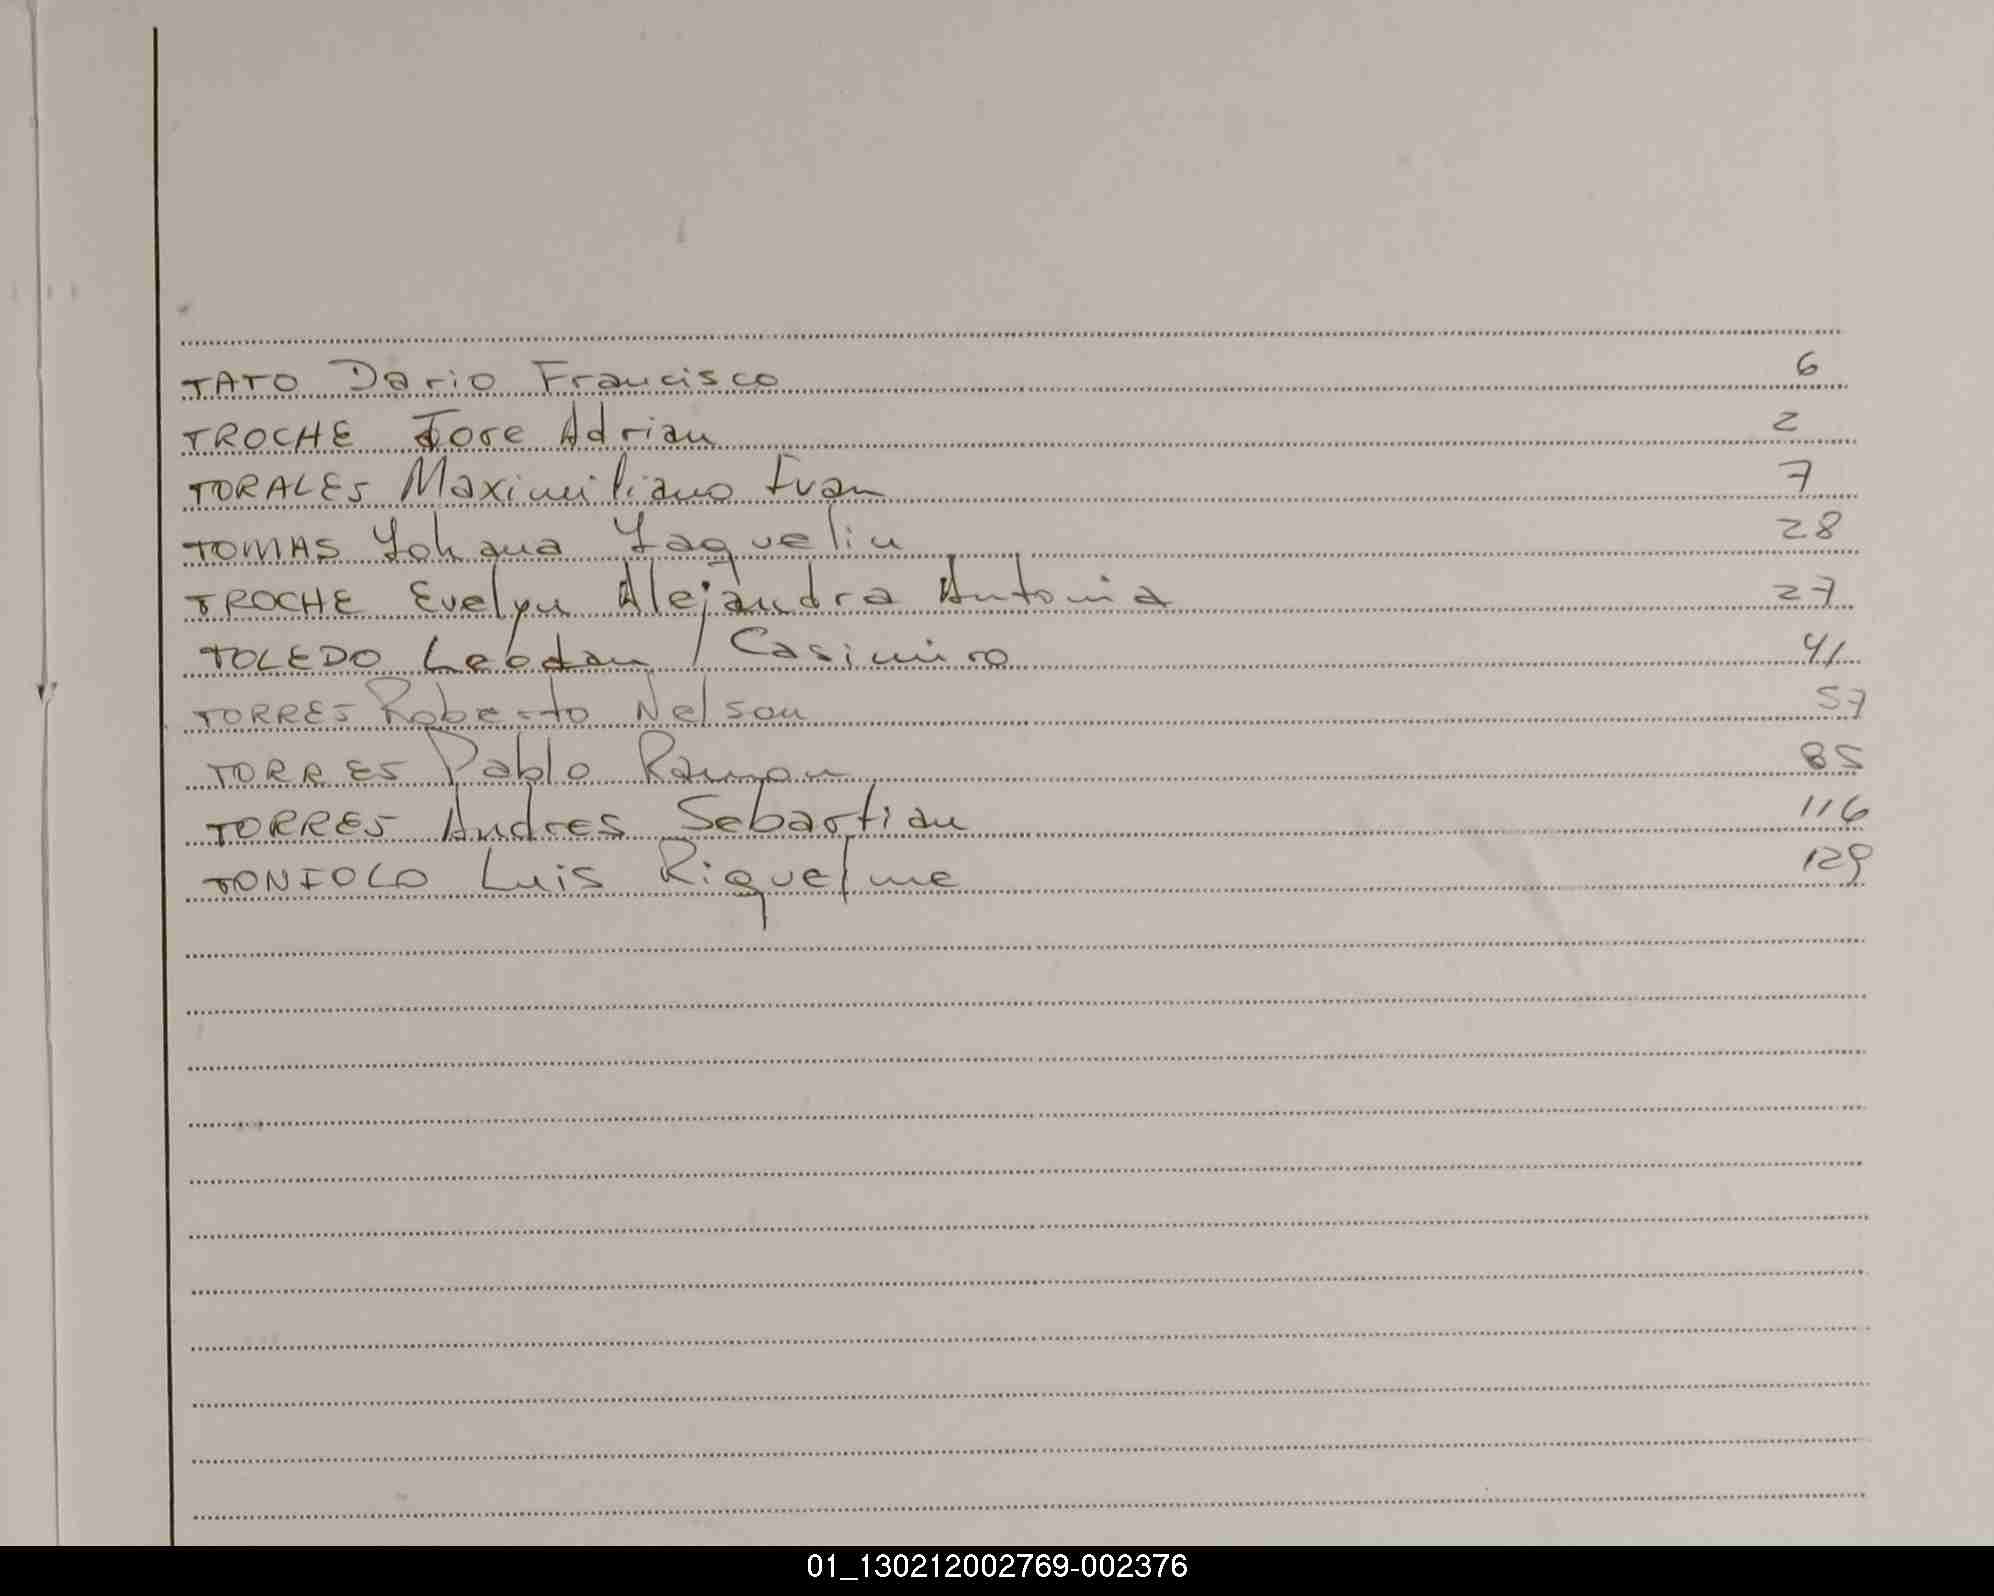 TATO Dario Francisco 6
TROCHE Jose Adrian 2
TORALES Maximiliano Ivan 7
TOMAS Yohana Yaquelin 28
TROCHE Evelyn Alejandra Antonia 27
TOLEDO Leodan Casimiro 41
TORRES Roberto Nelson 57
TORRES Pablo Ramon 85
TORRES Andres Sebastian 116
TONIOLO Luis Riquelme 129
01_130212002769-002376